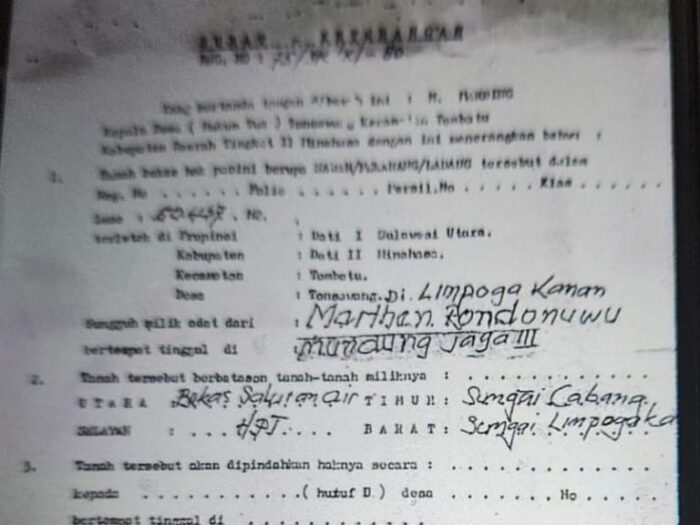 SURAT - KETERANGAN
REG. NO :
Yang bertanda tangan dibawah ini : H.
Kepala Desa ( Hukum Tua ) Tonsawang Kecamatan Tombatu
Kabupaten Daerah Tingkat II Minahasa dengan ini menerangkan bahwa :
1. Tanah bekas hak tersebut dalam
Reg. No . . . . . . Folio . . . . . . Persil.No . . . . . Klas . . .
Luas : . No. .
terletak di Propinsi : Dati I Sulawesi Utara.
Kabupaten : Dati II Minahasa.
Kecamatan : Tombatu.
Desa : Tonsawang. Di. Limpoga Kanan
Sungguh milik adat dari : Marthen. Rondonuwu
bertempat tinggal di : Mundung Jaga III
2. Tanah tersebut berbatasan tanah-tanah miliknya : . . . . . . . . . . .
UTARA : Bekas Saluran air TIMUR : Sungai Cabang.
SELATAN : . . . HPT. . . . BARAT : Sungai Limpogaka
3. Tanah tersebut akan dipindahkan haknya secara : . . . . . . . . . . .
kepada . . . . . . . . . . . ( hutuf D. ) desa . . . . . . . No . . . .
bertempat tinggal di . . . . . . . . . . .